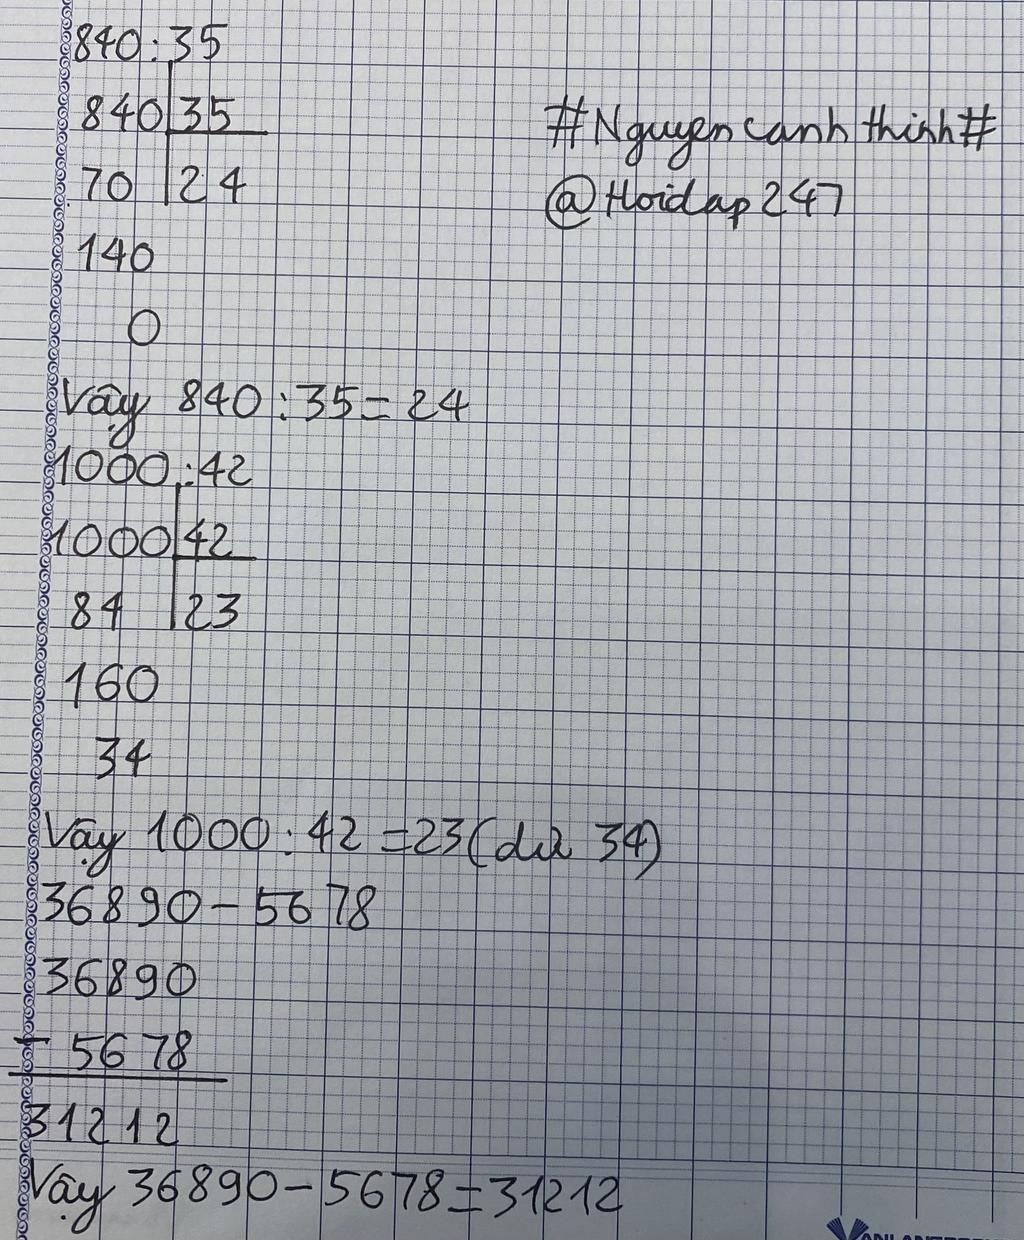 840:35
840 35
70 24
140
0
Vậy 840:35=24
1000:42
1000 42
84 23
160
34
Vậy 1000:42=23(dư 34)
36890-5678
36890
- 5678
31212
Vậy 36890-5678=31212
#Nguyencanhthinh#
@Hoidap247